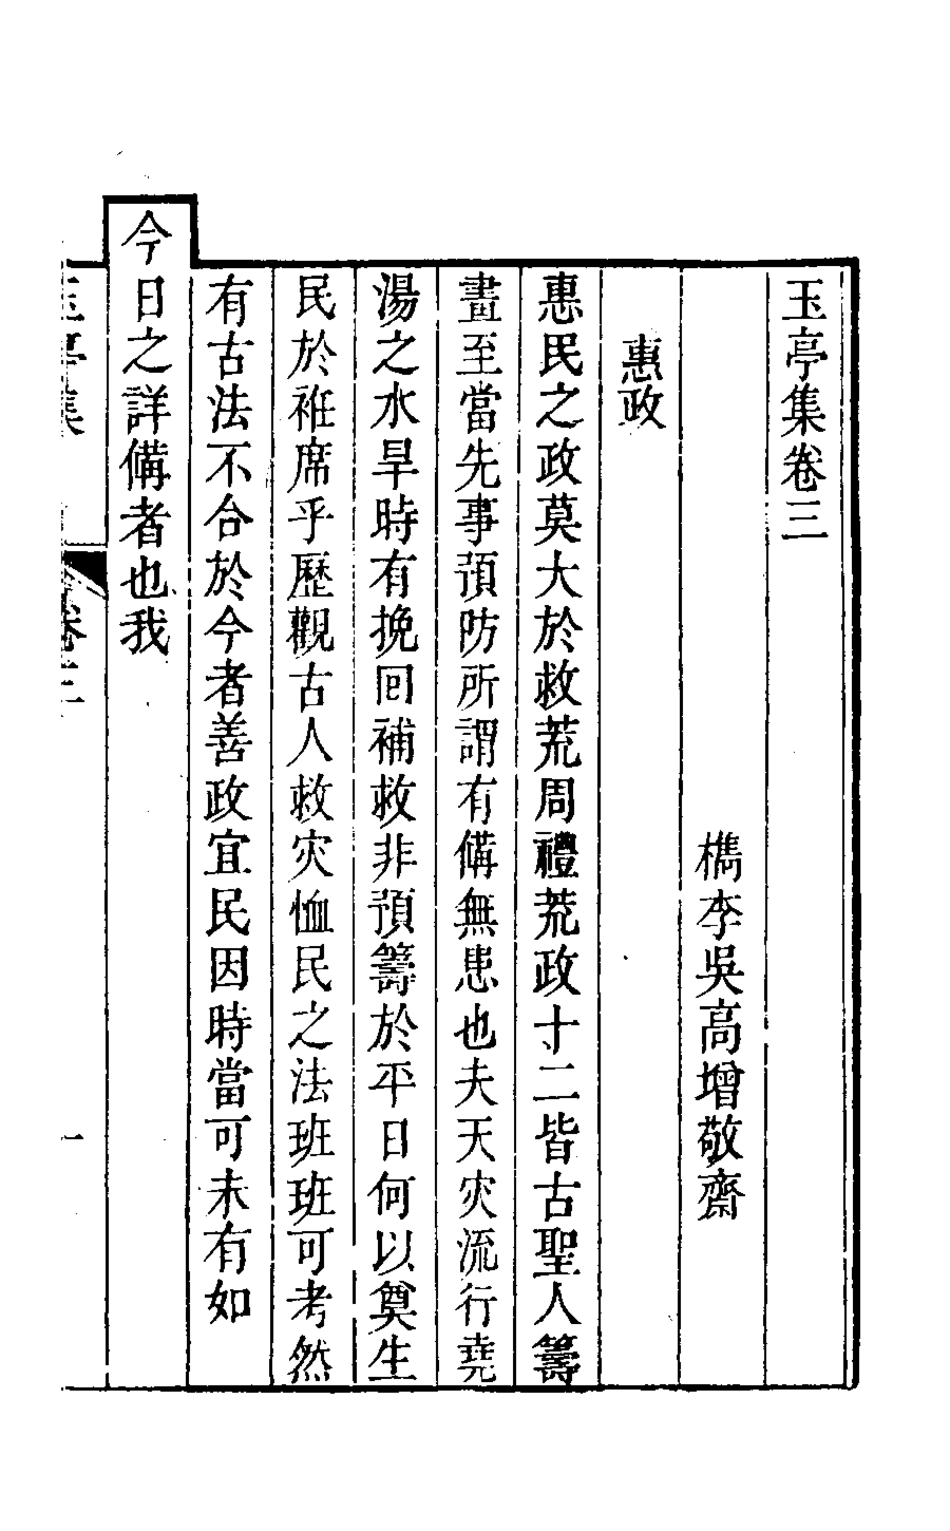 玉亭集卷三
檇李吳高增敬齋
惠政
惠民之政莫大於救荒周禮荒政十二皆古聖人籌
畫至當先事預防所謂有備無患也夫天灾流行堯
湯之水旱時有挽回補救非預籌於平日何以奠生
民於袵席乎歷觀古人救灾恤民之法班班可考然
有古法不合於今者善政宜民因時當可未有如
今日之詳備者也我
玉亭集 卷三 一